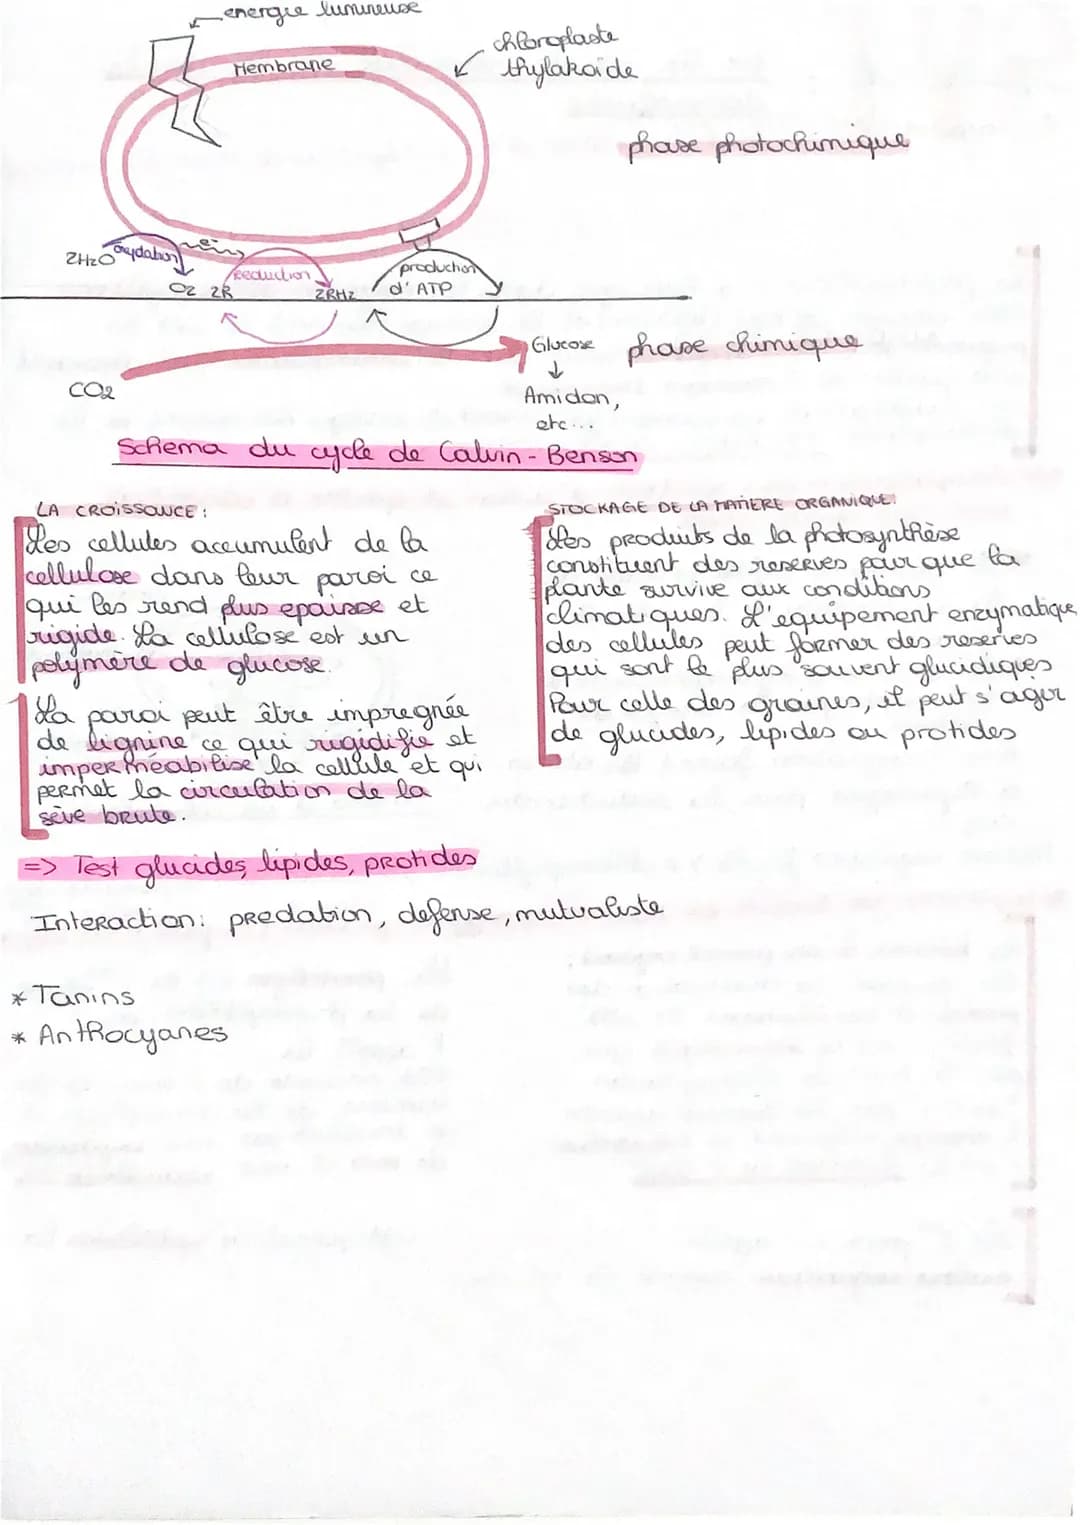 energie lumineuse
chloroplaste
thylakoïde
Membrane
phase photochimique
2H2O
oxydation
O2
2R
reduction
2RH2
production
d'ATP
Glucose
phase chimique
CO2
Amidon,
etc...
Schema du cycle de Calvin-Benson
LA CROISSOUCE:
Les cellules accumulent de la
cellulose dans leur paroi ce
qui les rend plus epaisse et
rigide. La cellulose est un
polymère de glucose.
La paroi peut être impregnée
de lignine ce qui rigidifie et
imperméabilise la cellule et qui
permet la circulation de la
sève brute.
STOCKAGE DE LA MATIERE ORGANIQUE:
Les produits de la photosynthèse
constituent des reserves pour que la
plante survive aux conditions
climatiques. L'equipement enzymatique
des cellules peut former des reserves
qui sont le plus souvent glucidiques
Pour celle des graines, il peut s'agir
de glucides, lipides ou protides
=> Test glucides, lipides, protides
Interaction: predation, defense, mutualiste
* Tanins
* Anthocyanes